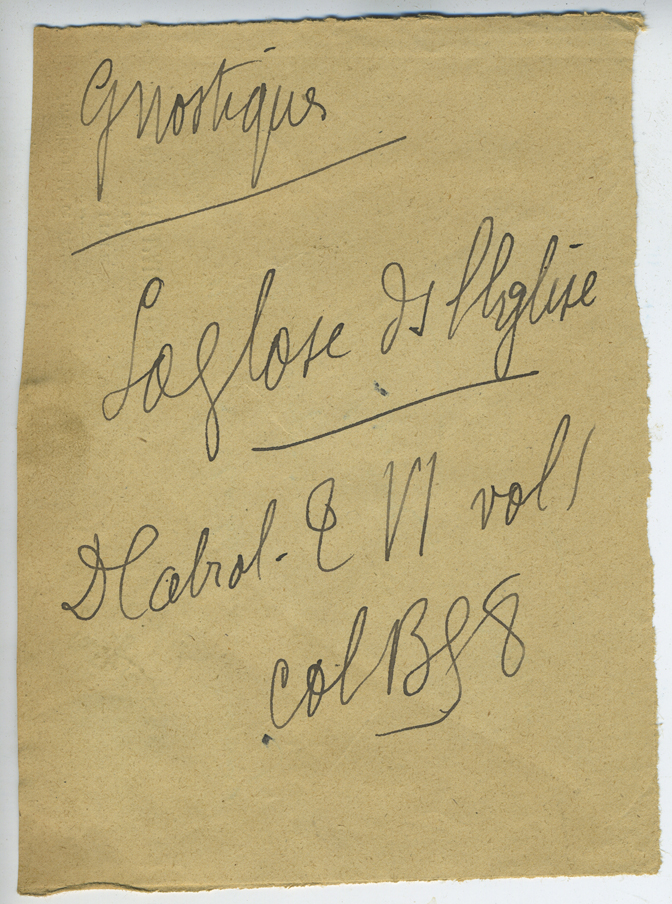 Gnostiques
La glose ds l'Eglise
D Cabrol. T VI vol 1
col